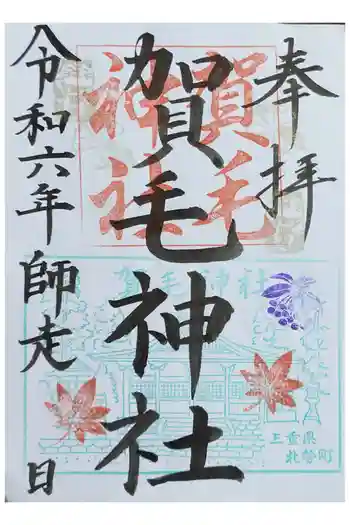 奉拝
賀毛神社
賀毛神社
令和六年師走 日
賀毛神社
三重県
北勢町